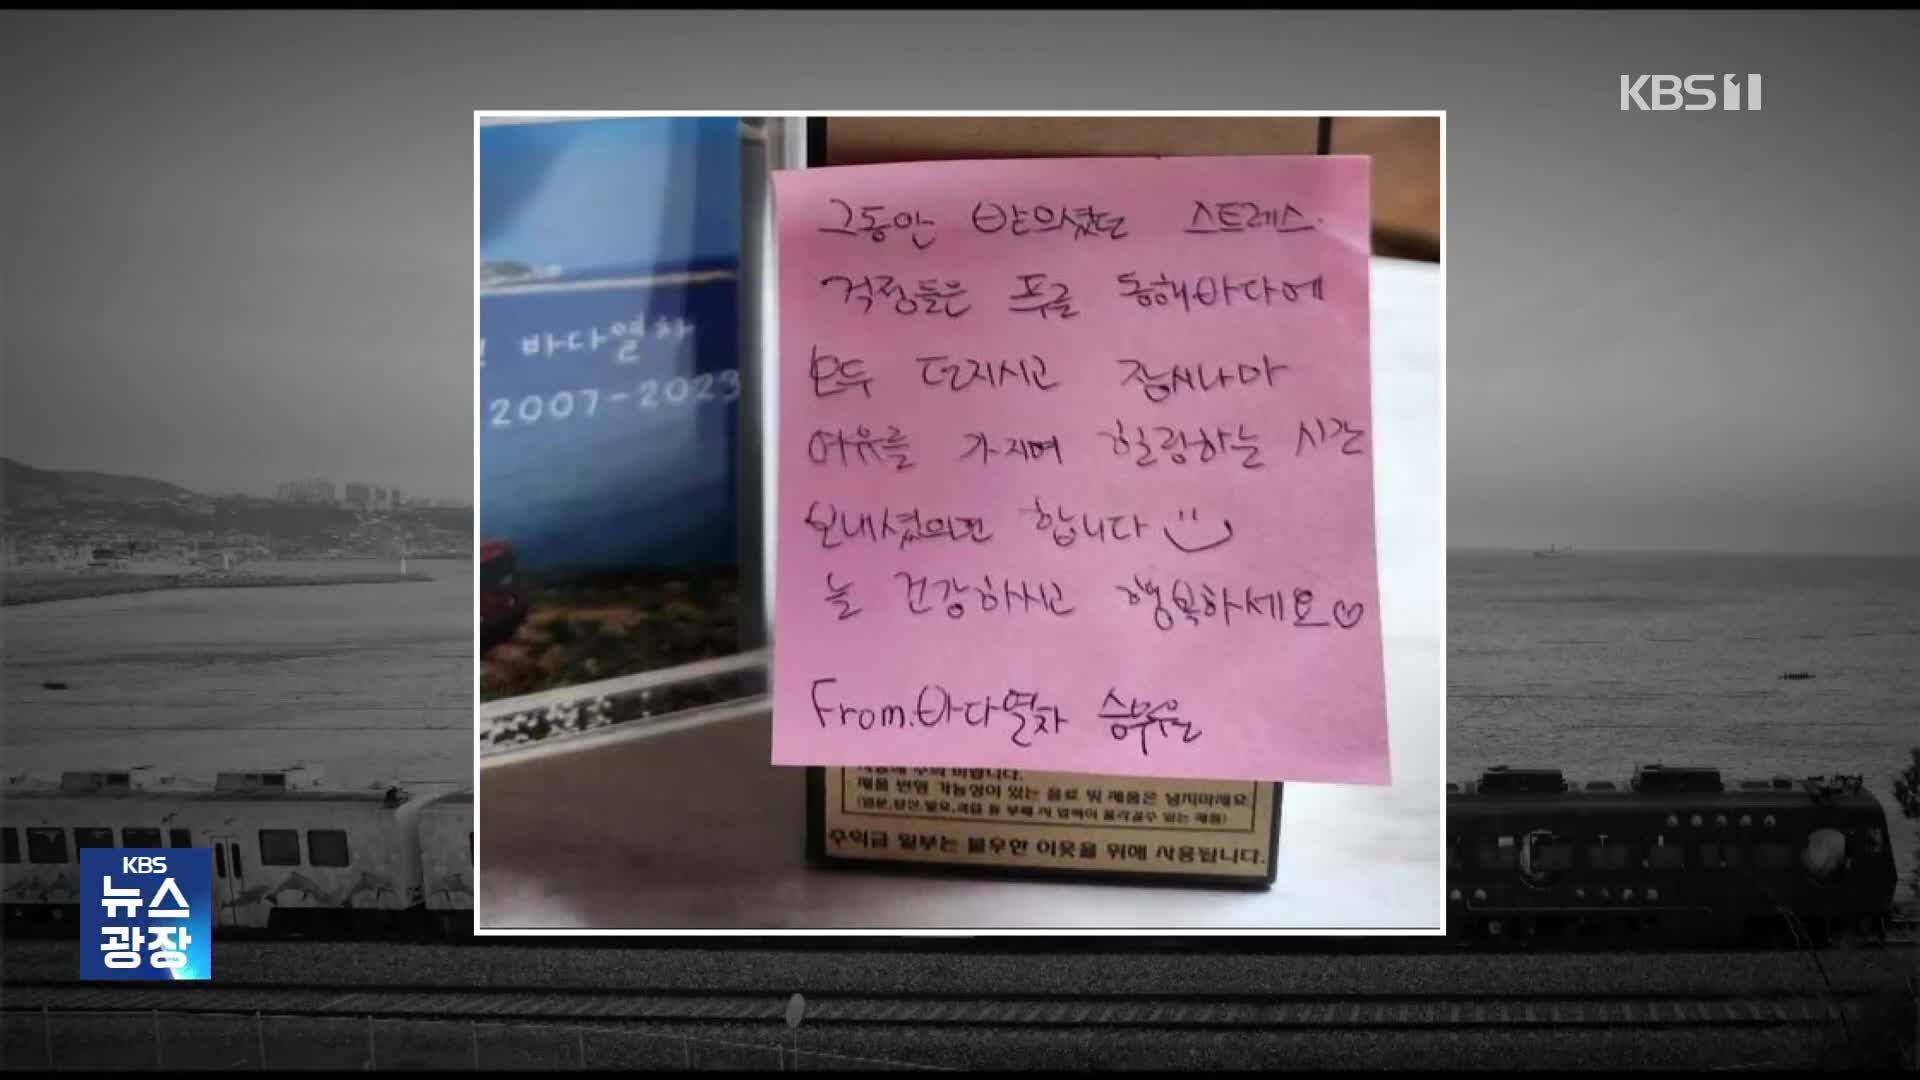 KBS 1
바다열차
2007-2023
그동안 받으셨던 스트레스.
걱정들은 푸른 동해바다에
모두 던지시고 잠시나마
여유를 가지며 힐링하는 시간
보내셨으면 합니다
늘 건강하시고 행복하세요
From. 바다열차 승무원
제품 변형 가능성이 있는 음료 및 제품은 넣지마세요
수익금 일부는 불우한 이웃을 위해 사용됩니다.
KBS
뉴스
광장